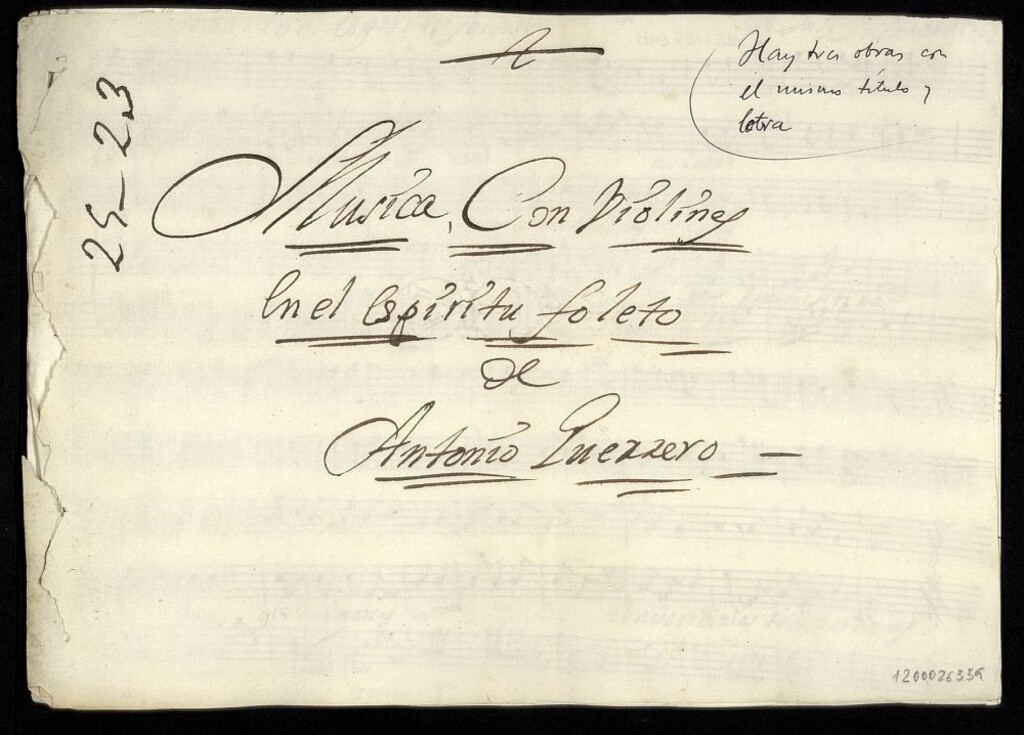 Hay tres obras con
el mismo título y
letra
25-23
Musica, Con Violines
En el Espiritu foleto
de
Antonio Guerrero
1200026359